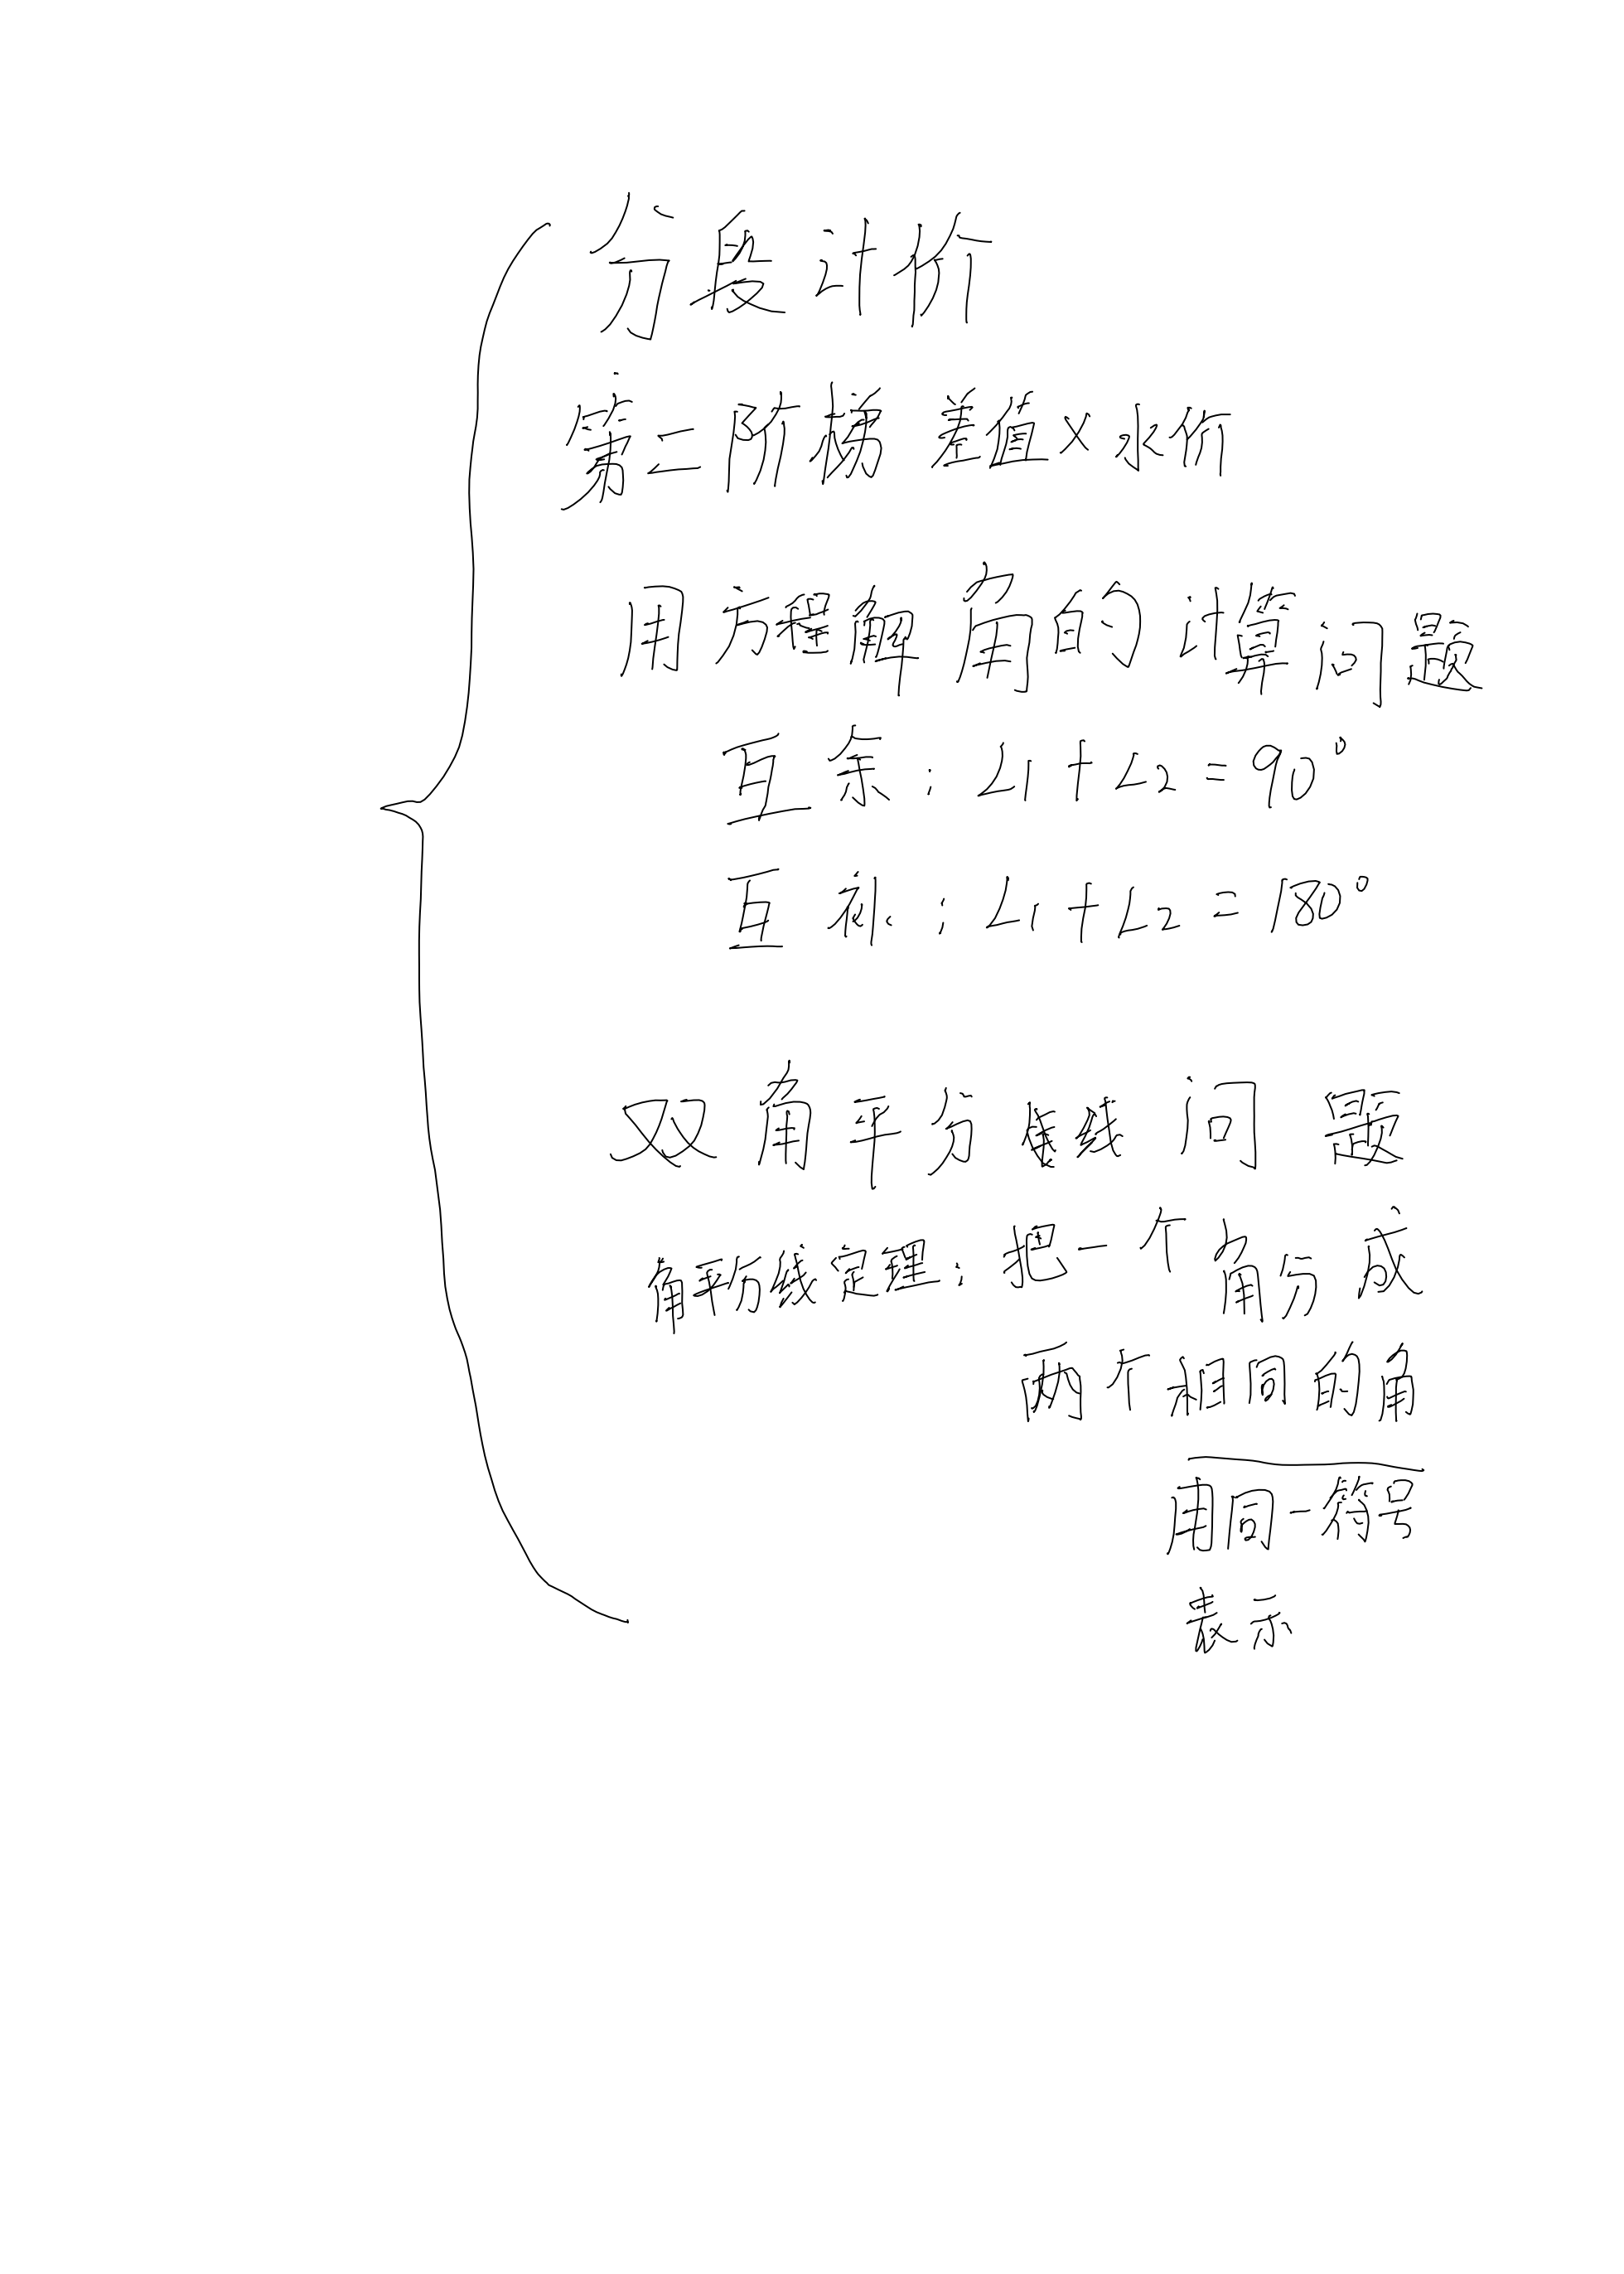 分段计价
第二阶梯 差值×水价
用方程解角的计算问题
互余：∠1+∠2=90°
互补：∠1+∠2=180°
双角平分线问题
角平分线定理：把一个角分成
两个相同的角
用同一符号
表示